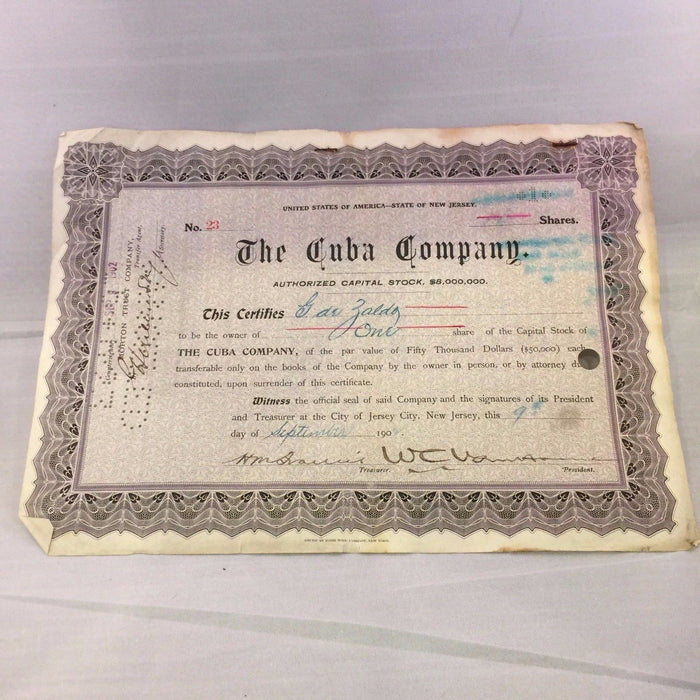 UNITED STATES OF AMERICA—STATE OF NEW JERSEY.
No. 23
Shares.
The Cuba Company.
AUTHORIZED CAPITAL STOCK, $8,000,000.
This Certifies G de Zaldo
to be the owner of One share of the Capital Stock of
THE CUBA COMPANY, of the par value of Fifty Thousand Dollars ($50,000) each
transferable only on the books of the Company by the owner in person, or by attorney
constituted, upon surrender of this certificate.
Witness the official seal of said Company and the signatures of its President
and Treasurer at the City of Jersey City, New Jersey, this 9th
day of September 190
Treasurer.
President.
MORTON TRUST COMPANY,
Transfer Agent,
Secretary.
Countersigned
1902